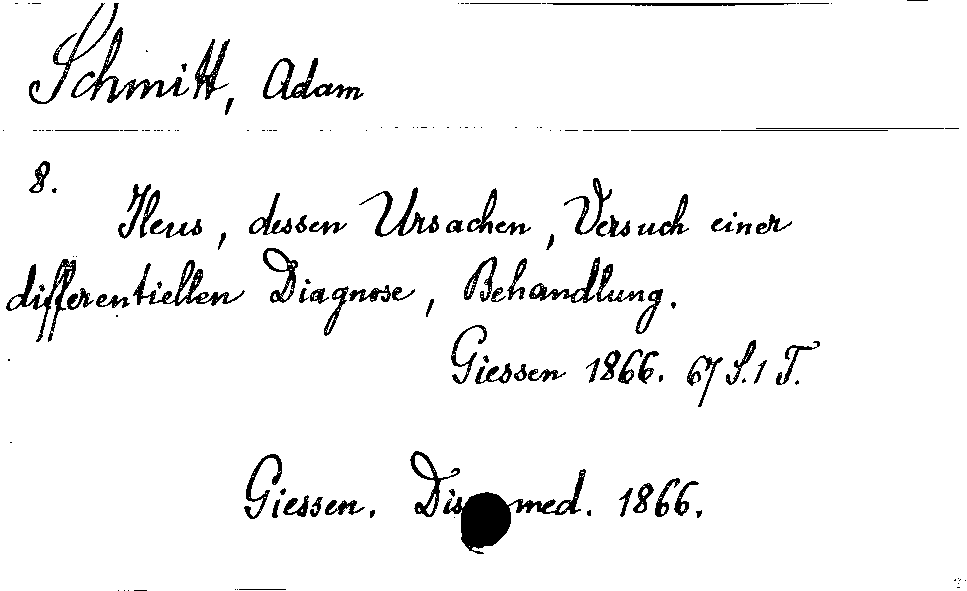 Schmitt, Adam
8.
Ileus, dessen Ursachen, Versuch einer
differentiellen Diagnose, Behandlung.
Giessen 1866. 67 S. 1 T.
Giessen. Dis med. 1866.